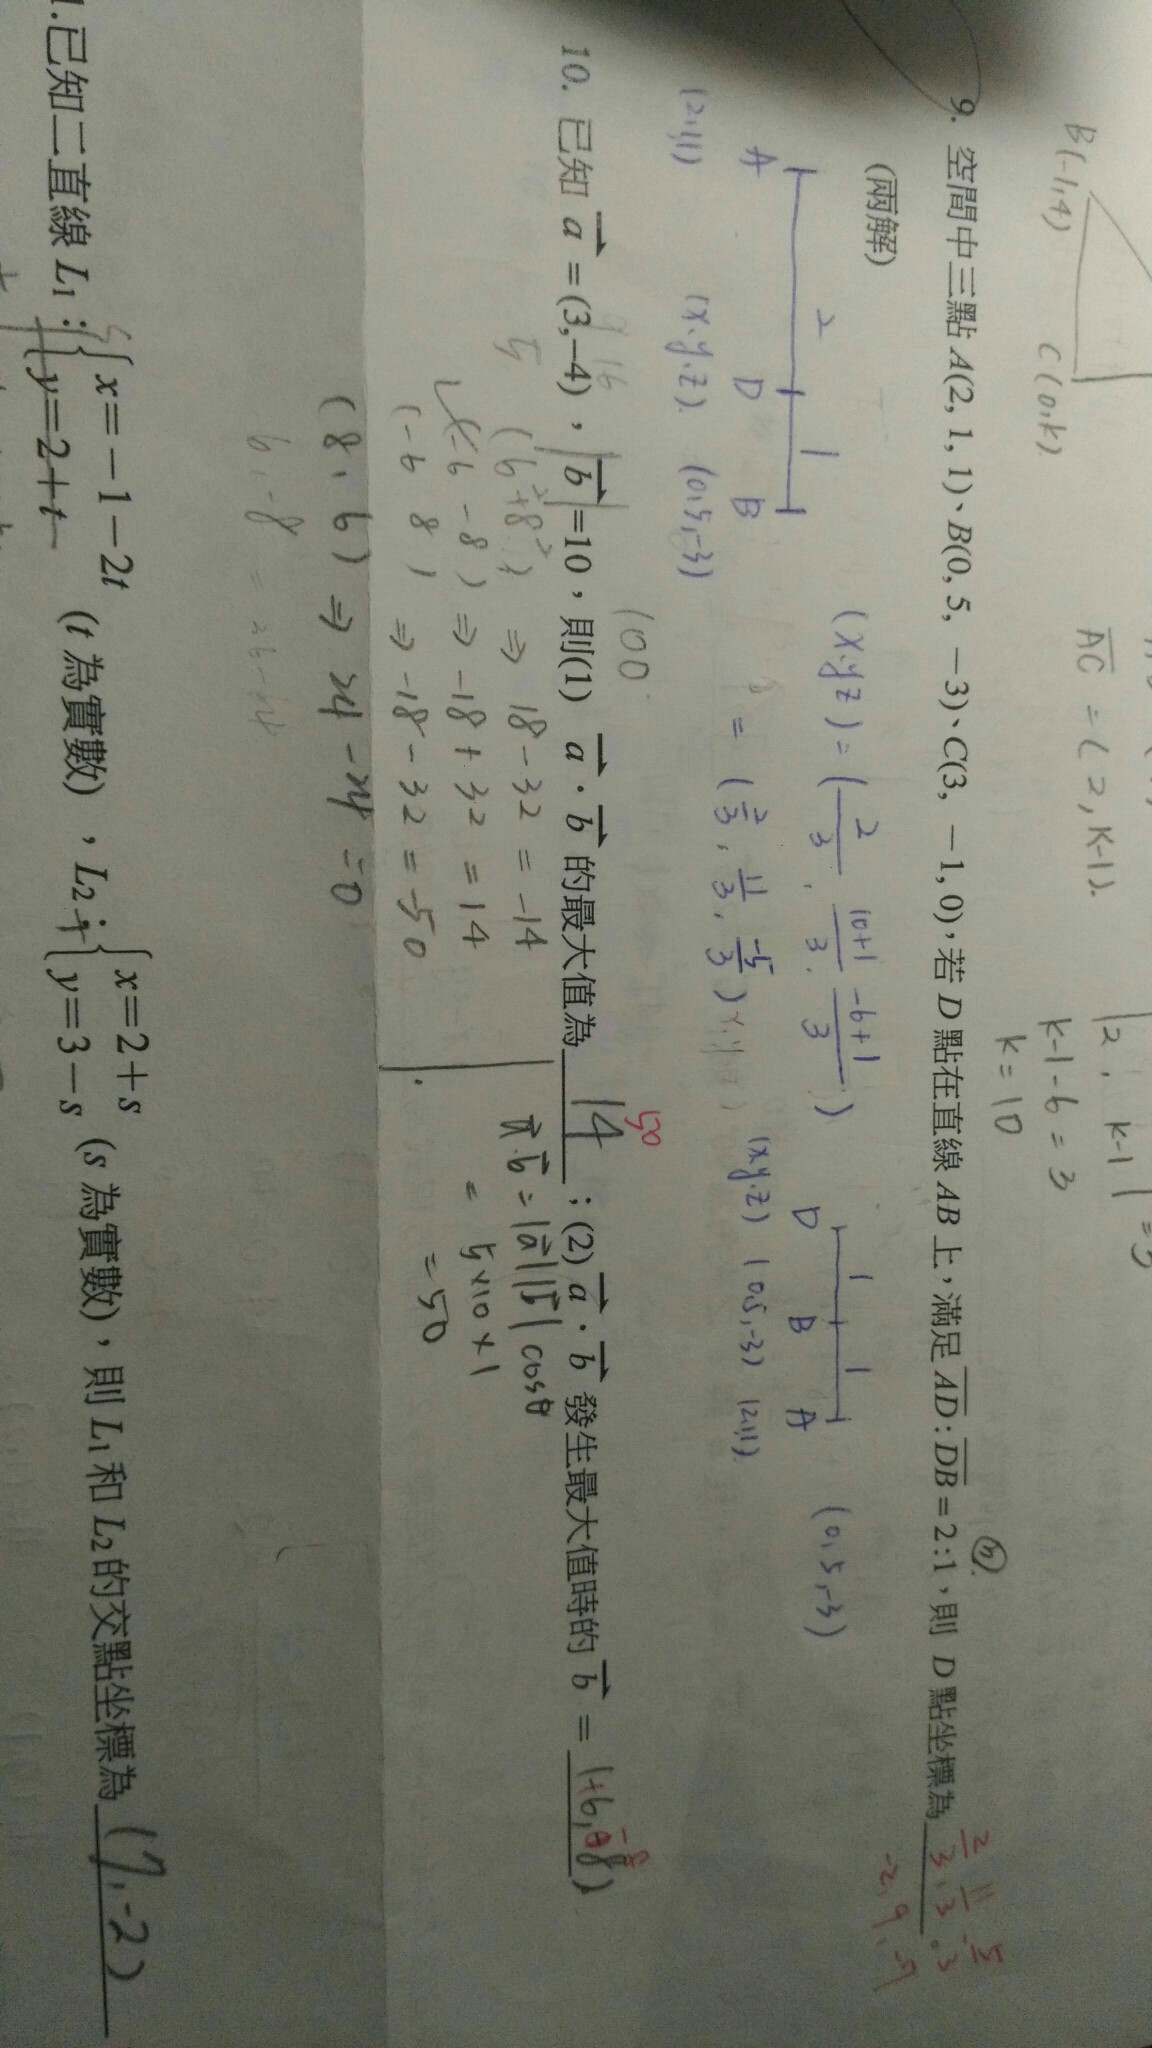 B(-1,4)
C(0,k)
AC = (2, k-1).
|2, k-1|
k-1-6=3
k=10
9. 空間中三點A(2, 1, 1)、B(0, 5, －3)、C(3, －1, 0)，若D點在直線AB上，滿足AD : DB = 2:1，則 D點坐標為
2/3, 11/3, -5/3
-2, 9, -7
(兩解)
(x.y z) = (2/3, 10+1/3, -6+1/3)
= (2/3, 11/3, -5/3)
2 1
A D B
(2,1,1) (x.y.z). (0,5,-3)
1 1
D B A
(x,y.z) (0,5,-3) (2,1,1).
(0,5,-3)
100
50
10. 已知 a =(3,–4)，| b |=10，則(1) a · b 的最大值為 14 ；(2) a · b 發生最大值時的 b = (+6, -8)
9 16
5
(6²+8²) ⇒ 18-32 = -14
(-6 -8) ⇒ -18+32 = 14
(-6 8) ⇒ -18-32 = -50
(8, 6) ⇒ 24-24=0
6, -8
a·b = |a||b| cosθ
= 5×10×1
= 50
1.已知二直線 L₁ : { x=－1－2t y=2+t (t 為實數)，L₂ : { x=2+s y=3－s (s 為實數)，則 L₁ 和 L₂ 的交點坐標為 (7,-2)